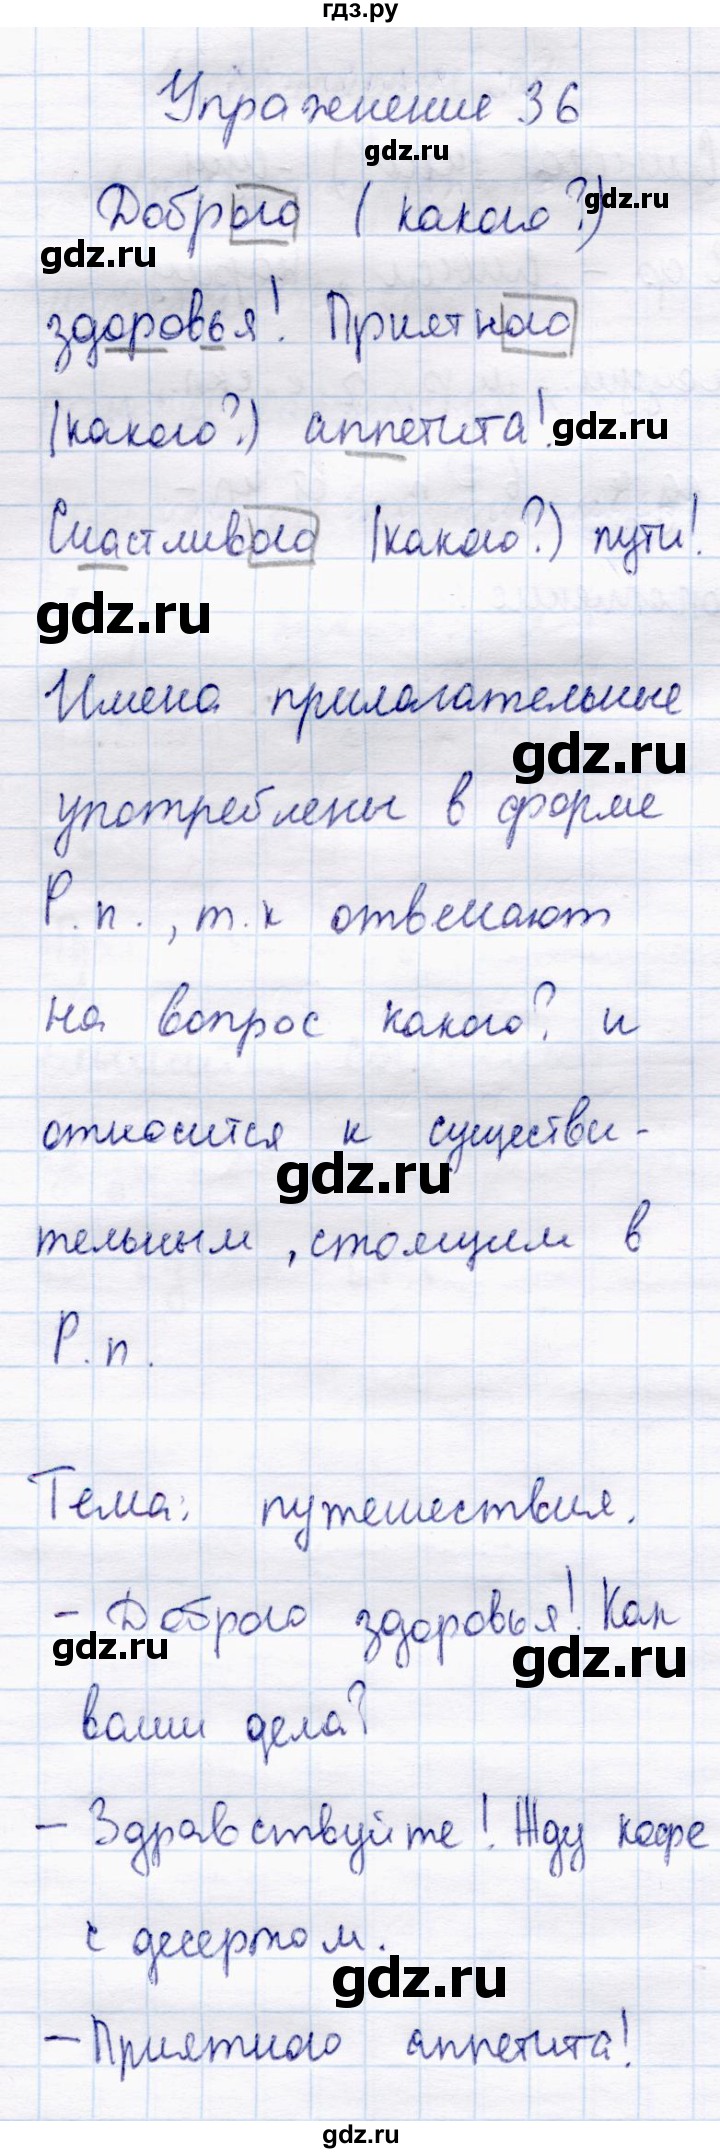 гдз.ру
Упражнение 36
gdz.ru
Доброго (какого?)
gdz.ru
gdz.ru
здоровья! Приятного
(какого?) аппетита!
gdz.ru
Счастливого (какого?) пути!
gdz.ru
Имена прилагательные
gdz.ru
употреблены в форме
Р.п., т.к отвечают
на вопрос какого? и
относится к существи-
gdz.ru
тельным, стоящим в
Р.п.
Тема: путешествия.
- Доброго здоровья! Как
gdz.ru
gdz.ru
ваши дела?
- Здравствуйте! Жду кофе
с десертом.
gdz.ru
- Приятного аппетита!
gdz.ru